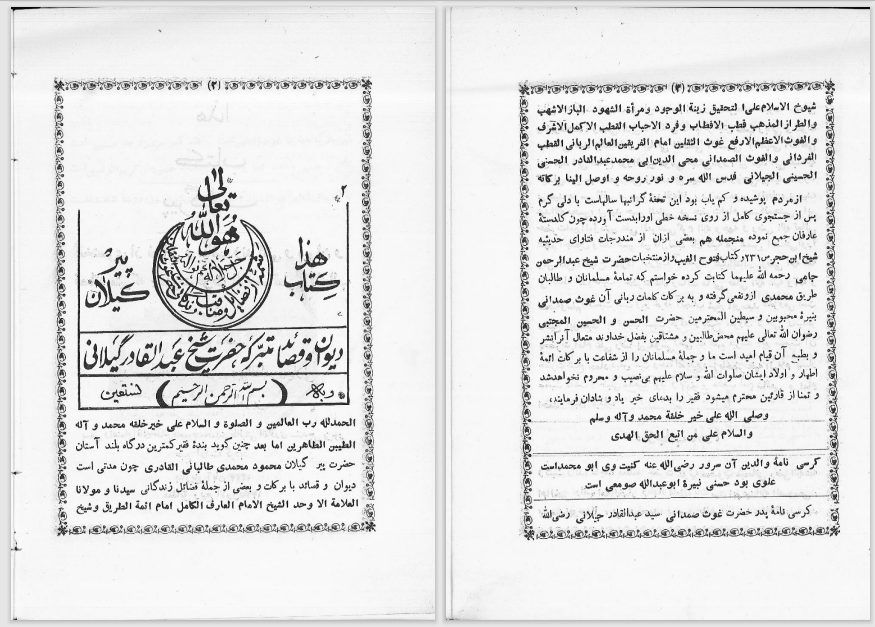 (۲)
۲
تعالی
هوالله
هذا
کتاب
پیر
گیلان
دیوان و قصائد متبرکه حضرت شیخ عبدالقادر گیلانی
و به (بسم الله الرحمن الرحیم) نستعین
الحمدلله رب العالمین و الصلوة و السلام علی خیر خلقه محمد و آله
الطیبین الطاهرین اما بعد چنین گوید بندۀ فقیر کمترین درگاه بلند آستان
حضرت پیر گیلان محمود محمدی طالبانی القادری چون مدتی است
دیوان و قصائد با برکات و بعضی از جملۀ فضائل زندگانی سیدنا و مولانا
العلامة الاوحد الشیخ الامام العارف الکامل امام ائمة الطریق وشیخ
(۳)
شیوخ الاسلام علی التحقیق زینة الوجود ومرأة الشهود البازالاشهب
والطراز المذهب قطب الاقطاب وفرد الاحباب القطب الاکمل الاشرف
والغوث الاعظم الارفع غوث الثقلین امام الفریقین العالم الربانی القطب
الفردانی والغوث الصمدانی محی الدین ابی محمد عبدالقادر الحسنی
الحسینی الجیلانی قدس الله سره و نور روحه و اوصل الینا برکاته
از مردم پوشیده و کم یاب بود این تحفۀ گرانبها سالهاست با دلی گرم
پس از جستجوی کامل از روی نسخه خطی اورابدست آورده چون گلدستۀ
عارفان جمع نموده منجمله هم بعضی ازان از مندرجات فتاوای حدیثیه
شیخ ابن حجر ص۲۳۱ و کتاب فتوح الغیب و از منتخبات حضرت شیخ عبدالرحمن
جامی رحمة الله علیهما کتابت کرده خواستم که تمامۀ مسلمانان و طالبان
طریق محمدی ازو نفعی گرفته و به برکات کلمات ربانی آن غوث صمدانی
بنیرۀ محبوبین و سبطین المحترمین حضرت الحسن و الحسین المجتبی
رضوان الله تعالی علیهم محض طالبین و مشتاقین بفضل خداوند متعال آنرا نشر
و بطبع آن قیام امید است ما و جملۀ مسلمانان را از شفاعت با برکات ائمۀ
اطهار و اولاد ایشان صلوات الله و سلام علیهم بی نصیب و محروم نخواهد شد
و تمنا از قارئین محترم میشود فقیر را بدعای خیر یاد و شادان فرمایند،
وصلی الله علی خیر خلقه محمد وآله وسلم
والسلام علی من اتبع الحق الهدی
کرسی نامۀ والدین آن سرور رضی الله عنه کنیت وی ابو محمد است
علوی بود حسنی نبیرۀ ابوعبدالله صومعی است
کرسی نامۀ پدر حضرت غوث صمدانی سید عبدالقادر جیلانی رضی الله